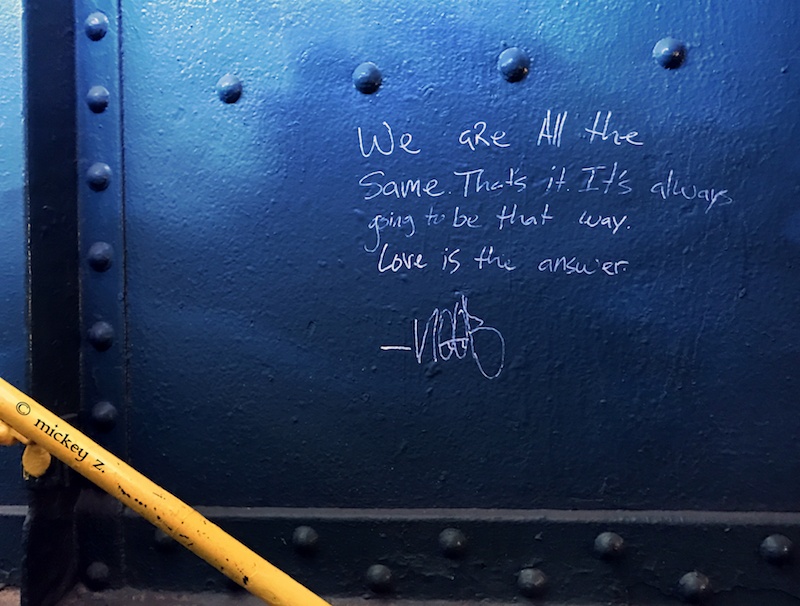 We aRe All the
Same. That's it. It's always
going to be that way.
Love is the answer.
© mickey z.